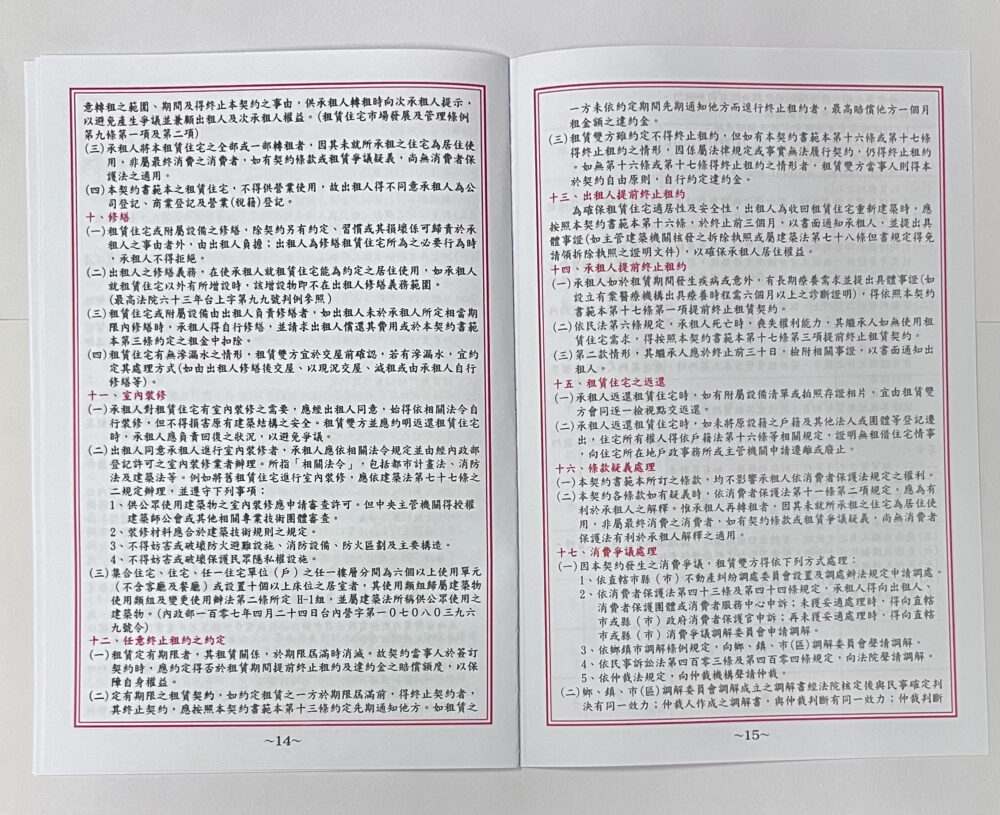 意轉租之範圍、期間及得終止本契約之事由，供承租人轉租時向次承租人提示，
以避免產生爭議並兼顧出租人及次承租人權益。(租賃住宅市場發展及管理條例
第九條第一項及第二項)
(三)承租人將本租賃住宅之全部或一部轉租者，因其未就所承租之住宅為居住使
用，非屬最終消費之消費者，如有契約條款或租賃爭議疑義，尚無消費者保
護法之適用。
(四)本契約書範本之租賃住宅，不得供營業使用，故出租人得不同意承租人為公
司登記、商業登記及營業(稅籍)登記。
十、修繕
(一)租賃住宅或附屬設備之修繕，除契約另有約定、習慣或其損壞係可歸責於承
租人之事由者外，由出租人負擔；出租人為修繕租賃住宅所為之必要行為時
，承租人不得拒絕。
(二)出租人之修繕義務，在使承租人就租賃住宅能為約定之居住使用，如承租人
就租賃住宅以外有所增設時，該增設物即不在出租人修繕義務範圍。
(最高法院六十三年台上字第九九號判例參照)
(三)租賃住宅或附屬設備由出租人負責修繕者，如出租人未於承租人所定相當期
限內修繕時，承租人得自行修繕，並請求出租人償還其費用或於本契約書範
本第三條約定之租金中扣除。
(四)租賃住宅有無滲漏水之情形，租賃雙方宜於交屋前確認，若有滲漏水，宜約
定其處理方式(如由出租人修繕後交屋、以現況交屋、減租或由承租人自行
修繕等)。
十一、室內裝修
(一)承租人對租賃住宅有室內裝修之需要，應經出租人同意，始得依相關法令自
行裝修，但不得損害原有建築結構之安全。租賃雙方並應約明返還租賃住宅
時，承租人應負責回復之狀況，以避免爭議。
(二)出租人同意承租人進行室內裝修者，承租人應依相關法令規定並由經內政部
登記許可之室內裝修業者辦理。所指「相關法令」，包括都市計畫法、消防
法及建築法等。例如將舊租賃住宅進行室內裝修，應依建築法第七十七條之
二規定辦理，並遵守下列事項：
1、供公眾使用建築物之室內裝修應申請審查許可。但中央主管機關得授權
建築師公會或其他相關專業技術團體審查。
2、裝修材料應合於建築技術規則之規定。
3、不得妨害或破壞防火避難設施、消防設備、防火區劃及主要構造。
4、不得妨害或破壞保護民眾隱私權設施。
(三)集合住宅、住宅、任一住宅單位（戶）之任一樓層分間為六個以上使用單元
（不含客廳及餐廳）或設置十個以上床位之居室者，其使用類組歸屬建築物
使用類組及變更使用辦法第二條所定 H-1組，並屬建築法所稱供公眾使用之
建築物。(內政部一百零七年四月二十四日台內營字第一０七０八０三九六
九號令)
十二、任意終止租約之約定
(一)租賃定有期限者，其租賃關係，於期限屆滿時消滅。故契約當事人於簽訂
契約時，應約定得否於租賃期間提前終止租約及違約金之賠償額度，以保
障自身權益。
(二)定有期限之租賃契約，如約定租賃之一方於期限屆滿前，得終止契約者，
其終止契約，應按照本契約書範本第十三條約定先期通知他方。如租賃之
~14~
一方未依約定期間先期通知他方而逕行終止租約者，最高賠償他方一個月
租金額之違約金。
(三)租賃雙方雖約定不得終止租約，但如有本契約書範本第十六條或第十七條
得終止租約之情形，因係屬法律規定或事實無法履行契約，仍得終止租約
。如無第十六條或第十七條得終止租約之情形者，租賃雙方當事人則得本
於契約自由原則，自行約定違約金。
十三、出租人提前終止租約
為確保租賃住宅適居性及安全性，出租人為收回租賃住宅重新建築時，應
按照本契約書範本第十六條，於終止前三個月，以書面通知承租人，並提出具
體事證(如主管建築機關核發之拆除執照或屬建築法第七十八條但書規定得免
請領拆除執照之證明文件)，以確保承租人居住權益。
十四、承租人提前終止租約
(一)承租人如於租賃期間發生疾病或意外，有長期療養需求並提出具體事證(如
設立有案醫療機構出具療養時程需六個月以上之診斷證明)，得依照本契約
書範本第十七條第一項提前終止租賃契約。
(二)依民法第六條規定，承租人死亡時，喪失權利能力，其繼承人如無使用租
賃住宅需求，得按照本契約書範本第十七條第三項提前終止租賃契約。
(三)第二款情形，其繼承人應於終止前三十日，檢附相關事證，以書面通知出
租人。
十五、租賃住宅之返還
(一)承租人返還租賃住宅時，如有附屬設備清單或拍照存證相片，宜由租賃雙
方會同逐一檢視點交返還。
(二)承租人返還租賃住宅時，如未將原設籍之戶籍及其他法人或團體等登記遷
出，住宅所有權人得依戶籍法第十六條等相關規定，證明無租借住宅情事
，向住宅所在地戶政事務所或主管機關申請遷離或廢止。
十六、條款疑義處理
(一)本契約書範本所訂之條款，均不影響承租人依消費者保護法規定之權利。
(二)本契約各條款如有疑義時，依消費者保護法第十一條第二項規定，應為有
利於承租人之解釋。惟承租人再轉租者，因其未就所承租之住宅為居住使
用，非屬最終消費之消費者，如有契約條款或租賃爭議疑義，尚無消費者
保護法有利於承租人解釋之適用。
十七、消費爭議處理
(一)因本契約發生之消費爭議，租賃雙方得依下列方式處理：
1、依直轄市縣（市）不動產糾紛調處委員會設置及調處辦法規定申請調處。
2、依消費者保護法第四十三條及第四十四條規定，承租人得向出租人、
消費者保護團體或消費者服務中心申訴；未獲妥適處理時，得向直轄
市或縣（市）政府消費者保護官申訴；再未獲妥適處理時，得向直轄
市或縣（市）消費爭議調解委員會申請調解。
3、依鄉鎮市調解條例規定，向鄉、鎮、市(區)調解委員會聲請調解。
4、依民事訴訟法第四百零三條及第四百零四條規定，向法院聲請調解。
5、依仲裁法規定，向仲裁機構聲請仲裁。
(二)鄉、鎮、市(區)調解委員會調解成立之調解書經法院核定後與民事確定判
決有同一效力；仲裁人作成之調解書，與仲裁判斷有同一效力；仲裁判斷
~15~